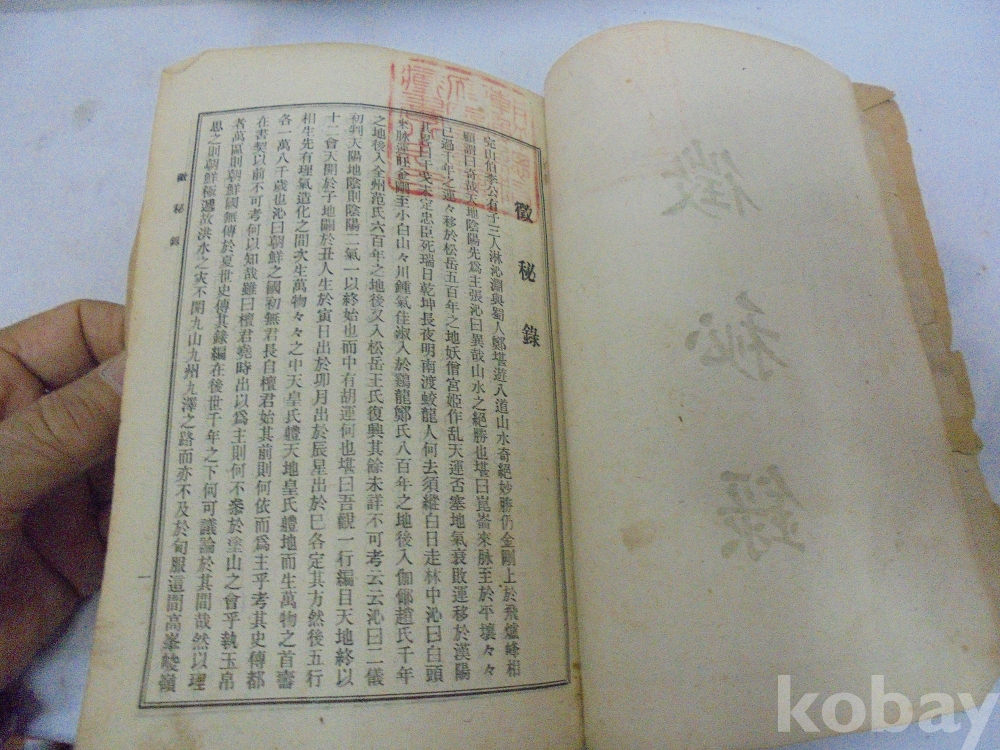 徵秘錄
徵秘錄
完山伯李公有子三人淋沁淵與蜀人鄭堪遊入道山水奇絕妙勝仍金剛上於飛爐峰相
顧謂曰奇哉天地陰陽先爲主張沁曰異哉山水之絕勝也堪曰崑崙來脉至於平壤々々
已過千年之運々移於松岳五百年之地妖僧宮姬作乱天運否塞地氣衰敗運移於漢陽
曰千戈未定忠臣死瑞日乾坤長夜明南渡蛟龍人何去須縱白日走林中沁曰白頭
來脉運移金剛主小白山々川鍾氣佳淑入於鷄龍鄭氏八百年之地後入伽倻趙氏千年
之地後入全州范氏六百年之地後又入松岳王氏復興其餘未詳不可考云云沁曰二儀
初判天陽地陰則陰陽二氣一以終始也而中有胡運何也堪曰吾觀一行編目天地終以
十二會天開於子地闢於丑人生於寅日出於卯月出於辰星出於巳各定其方然後五行
相生先有理氣造化之間次生萬物々々之中天皇氏體天地皇氏體地而生萬物之首審
各一萬八千歲也沁曰朝鮮之國初無君長自檀君始其前則何依而爲主乎考其史傳都
在書契以前不可考何以知哉雖曰檀君堯時出以爲主則何不參於塗山之會乎執玉帛
者萬區則朝鮮國無傳於夏世史傳其錄編在後世千年之下何可議論於其間哉然以理
思之則朝鮮極遐故洪水之灾不開九山九州九澤之路而亦不及於甸服這間高峯峻嶺
徵秘錄
一
kobay